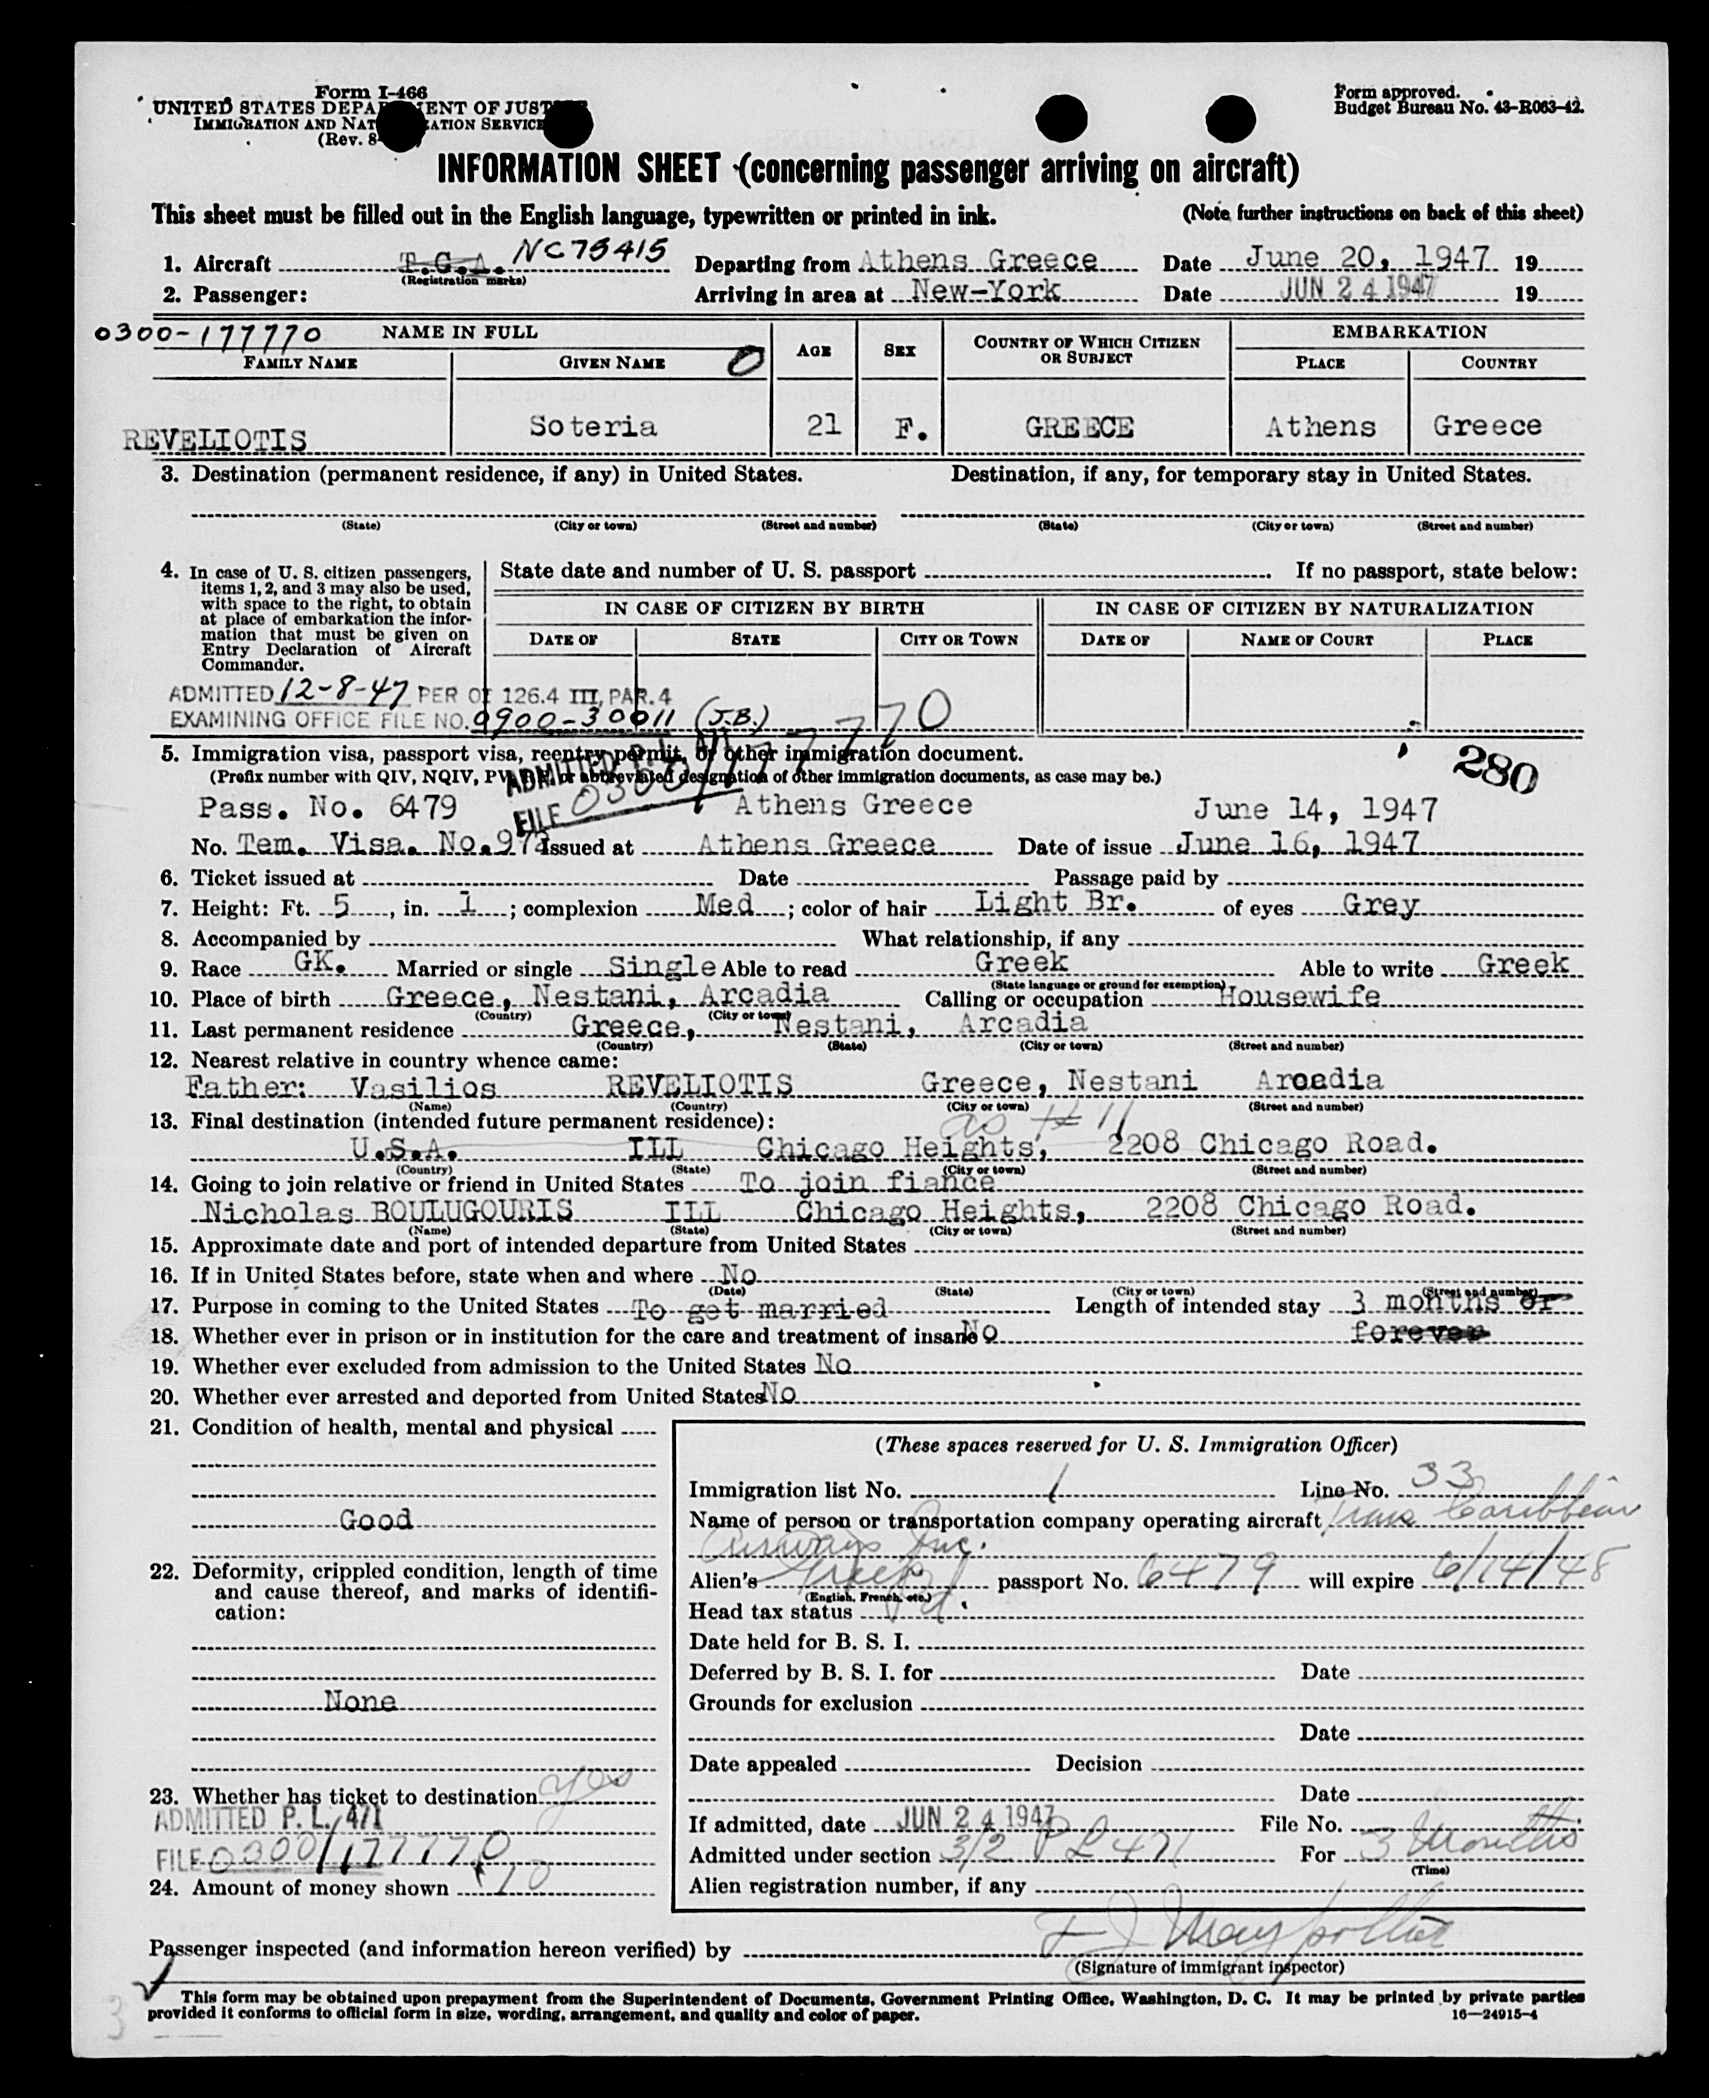 Form I-466
UNITED STATES DEPARTMENT OF JUSTICE
IMMIGRATION AND NATURALIZATION SERVICE
(Rev. 8-
Form approved.
Budget Bureau No. 43-R063-42.
INFORMATION SHEET (concerning passenger arriving on aircraft)
This sheet must be filled out in the English language, typewritten or printed in ink.
(Note further instructions on back of this sheet)
1. Aircraft T.C.A. NC75415 Departing from Athens Greece Date June 20, 1947 19
(Registration marks)
2. Passenger: Arriving in area at New-York Date JUN 24 1947 19
0300-177770 NAME IN FULL AGE SEX COUNTRY OF WHICH CITIZEN OR SUBJECT EMBARKATION
FAMILY NAME GIVEN NAME 0 PLACE COUNTRY
REVELIOTIS Soteria 21 F. GREECE Athens Greece
3. Destination (permanent residence, if any) in United States. Destination, if any, for temporary stay in United States.
(State) (City or town) (Street and number) (State) (City or town) (Street and number)
4. In case of U. S. citizen passengers, items 1, 2, and 3 may also be used, with space to the right, to obtain at place of embarkation the information that must be given on Entry Declaration of Aircraft Commander.
State date and number of U. S. passport If no passport, state below:
IN CASE OF CITIZEN BY BIRTH IN CASE OF CITIZEN BY NATURALIZATION
DATE OF STATE CITY OR TOWN DATE OF NAME OF COURT PLACE
ADMITTED 12-8-47 PER OI 126.4 III, PAR. 4
EXAMINING OFFICE FILE NO. 0900-30011 (J.B.)
5. Immigration visa, passport visa, reentry permit, or other immigration document.
(Prefix number with QIV, NQIV, PV, RP, or abbreviated designation of other immigration documents, as case may be.)
ADMITTED P.L. 471
FILE 0300/177770
280
Pass. No. 6479 Athens Greece June 14, 1947
No. Tem. Visa. No.973 Issued at Athens Greece Date of issue June 16, 1947
6. Ticket issued at Date Passage paid by
7. Height: Ft. 5, in. 1; complexion Med; color of hair Light Br. of eyes Grey
8. Accompanied by What relationship, if any
9. Race GK. Married or single Single Able to read Greek Able to write Greek
(State language or ground for exemption)
10. Place of birth Greece, Nestani, Arcadia Calling or occupation Housewife
(Country) (City or town)
11. Last permanent residence Greece, Nestani, Arcadia
(Country) (State) (City or town) (Street and number)
12. Nearest relative in country whence came:
Father: Vasilios REVELIOTIS Greece, Nestani Arcadia
(Name) (Country) (City or town) (Street and number)
13. Final destination (intended future permanent residence): as # 11
U.S.A. ILL Chicago Heights, 2208 Chicago Road.
(Country) (State) (City or town) (Street and number)
14. Going to join relative or friend in United States To join fiance
Nicholas BOULUGOURIS ILL Chicago Heights, 2208 Chicago Road.
(Name) (State) (City or town) (Street and number)
15. Approximate date and port of intended departure from United States
16. If in United States before, state when and where No
(Date) (State) (City or town) (Street and number)
17. Purpose in coming to the United States To get married Length of intended stay 3 months or
18. Whether ever in prison or in institution for the care and treatment of insane No forever
19. Whether ever excluded from admission to the United States No
20. Whether ever arrested and deported from United States No
21. Condition of health, mental and physical
Good
22. Deformity, crippled condition, length of time and cause thereof, and marks of identification:
None
23. Whether has ticket to destination yes
ADMITTED P. L. 471
FILE 0300/177770
24. Amount of money shown 10
(These spaces reserved for U. S. Immigration Officer)
Immigration list No. 1 Line No. 33
Name of person or transportation company operating aircraft Trans Caribbean
Airways Inc.
Alien's Greek passport No. 6479 will expire 6/14/48
(English, French, etc.)
Head tax status
Date held for B. S. I.
Deferred by B. S. I. for Date
Grounds for exclusion
Date
Date appealed Decision
Date
If admitted, date JUN 24 1947 File No.
Admitted under section 3/2 PL 471 For 3 Months
(Time)
Alien registration number, if any
Passenger inspected (and information hereon verified) by
(Signature of immigrant inspector)
This form may be obtained upon prepayment from the Superintendent of Documents, Government Printing Office, Washington, D. C. It may be printed by private parties
provided it conforms to official form in size, wording, arrangement, and quality and color of paper.
16—24915-4
3